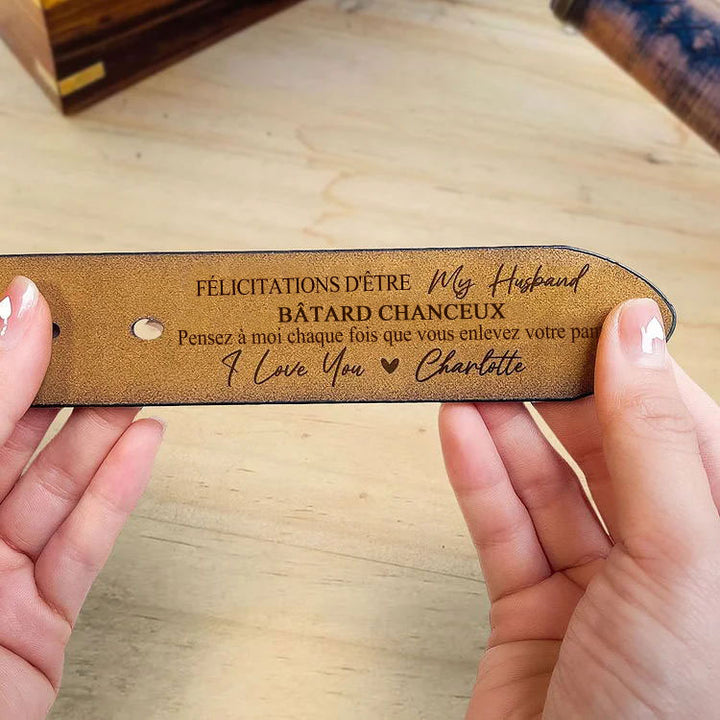 FÉLICITATIONS D'ÊTRE My Husband
BÂTARD CHANCEUX
Pensez à moi chaque fois que vous enlevez votre
I Love You ♥ Charlotte